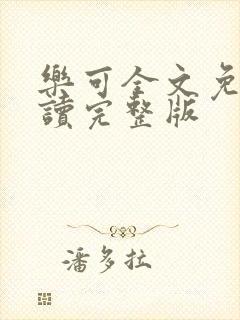 樂可全文免
讀完整版
潘多拉